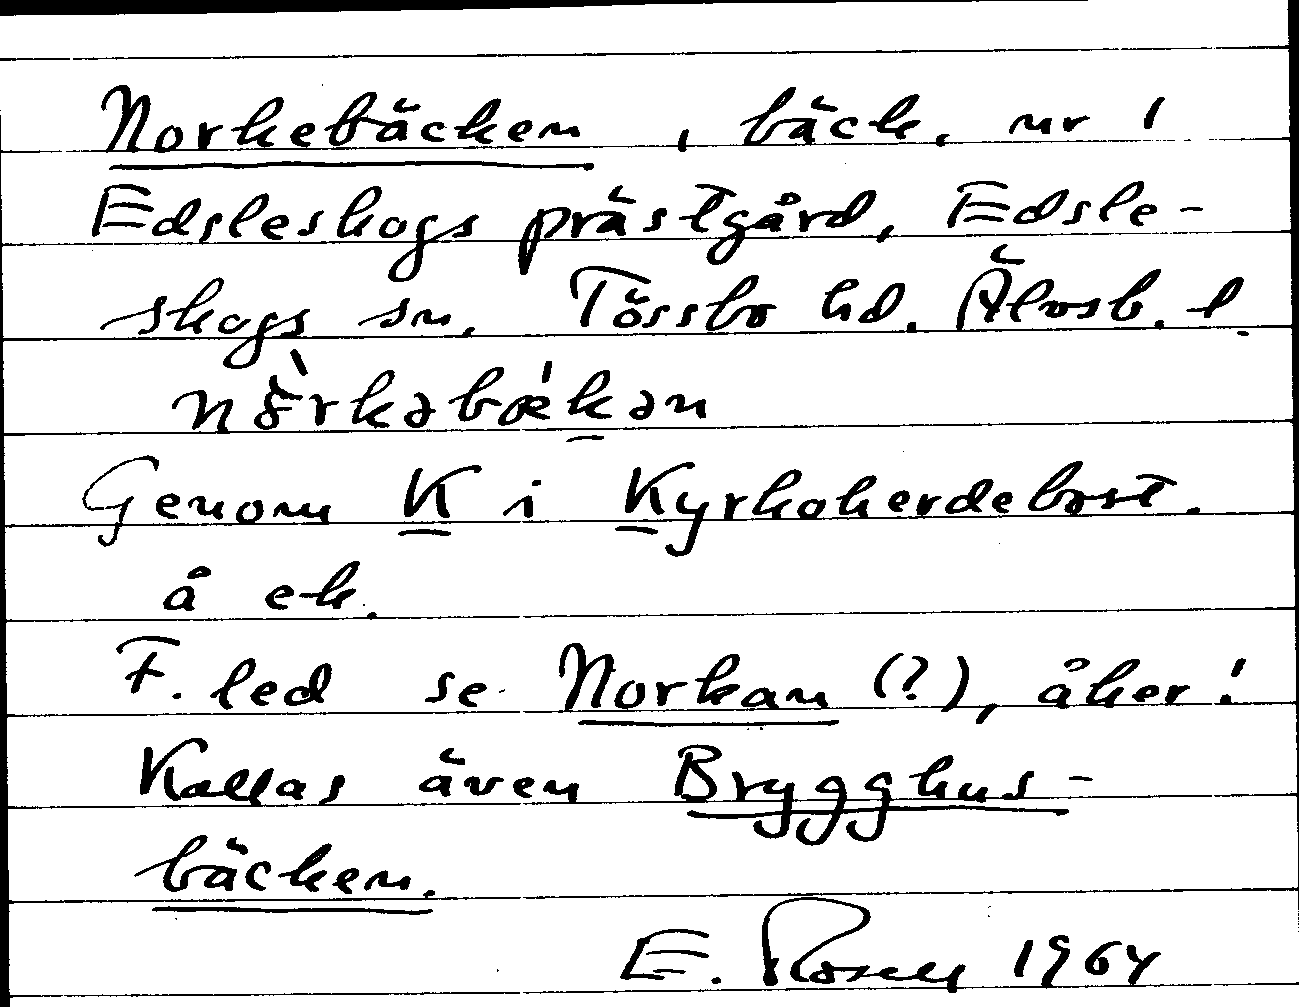 Norkebäcken, bäck, nr 1
Edsleskogs prästgård, Edsle-
skogs sn. Tössbo hd. Älvsb. l.
nɔ̈̀rkəbæ'kən
Genom K i Kyrkoherdebost.
å ek.
F. led se Norkan (?), åker!
Kallas även Brygghus-
bäcken.
E. Rosell 1964